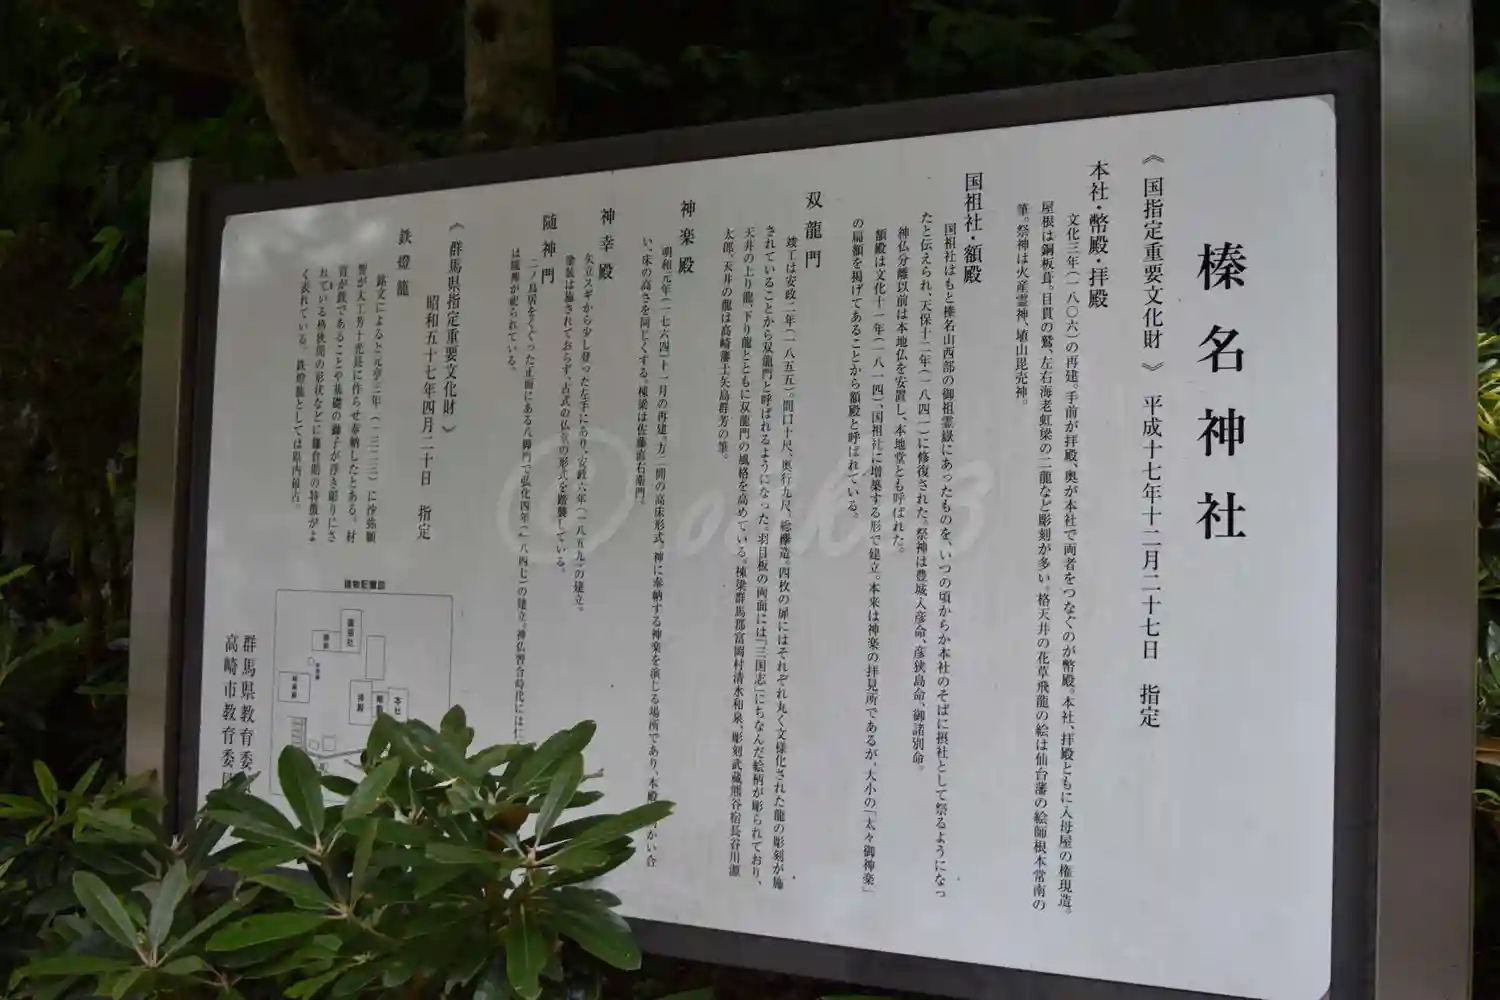 榛名神社
《 国指定重要文化財 》 平成十七年十二月二十七日 指定
本社・幣殿・拝殿
文化三年(一八〇六)の再建。手前が拝殿、奥が本社で両者をつなぐのが幣殿。本社、拝殿ともに入母屋の権現造。
屋根は銅板葺。目貫の鷲、左右海老虹梁の二龍など彫刻が多い。格天井の花草飛龍の絵は仙台藩の絵師根本常南の
筆。祭神は火産霊神、埴山毘売神。
国祖社・額殿
国祖社はもと榛名山西部の御祖霊嶽にあったものを、いつの頃からか本社のそばに摂社として祭るようになっ
たと伝えられ、天保十二年(一八四一)に修復された。祭神は豊城入彦命、彦狭島命、御諸別命。
神仏分離以前は本地仏を安置し、本地堂とも呼ばれた。
額殿は文化十一年(一八一四)、国祖社に増築する形で建立。本来は神楽の拝見所であるが、大小の「太々御神楽」
の扁額を掲げてあることから額殿と呼ばれている。
双龍門
竣工は安政二年(一八五五)。間口十尺、奥行九尺、総欅造。四枚の扉にはそれぞれ丸く文様化された龍の彫刻が施
されていることから双龍門と呼ばれるようになった。羽目板の両面には「三国志」にちなんだ絵柄が彫られており、
天井の上り龍、下り龍とともに双龍門の風格を高めている。棟梁群馬郡富岡村清水和泉、彫刻武蔵熊谷宿長谷川源
太郎、天井の龍は高崎藩士矢島群芳の筆。
神楽殿
明和元年(一七六四)十一月の再建。方二間の高床形式。神に奉納する神楽を演じる場所であり、本殿 かい合
い、床の高さを同じくする。棟梁は佐藤直右衛門。
神幸殿
矢立スギから少し登った左手にあり、安政六年(一八五九)の建立。
塗装は施されておらず、古式の仏堂の形式を踏襲している。
随神門
二ノ鳥居をくぐった正面にある八脚門で弘化四年(一八四七)の建立。神仏習合時代には仁
は随神が祀られている。
《 群馬県指定重要文化財 》
昭和五十七年四月二十日 指定
鉄燈籠
銘文によると元亨三年(一三二三)に沙弥願
智が大工 に作らせ奉納したとある。材
質が鉄であることや基礎の獅子が浮き彫りにさ
れている格狭間の形状などに鎌倉期の特徴がよ
く表れている。鉄燈籠としては県内最古。
建物配置図
国祖社
額殿
神楽殿
本社
幣殿
拝殿
群馬県教育委
高崎市教育委